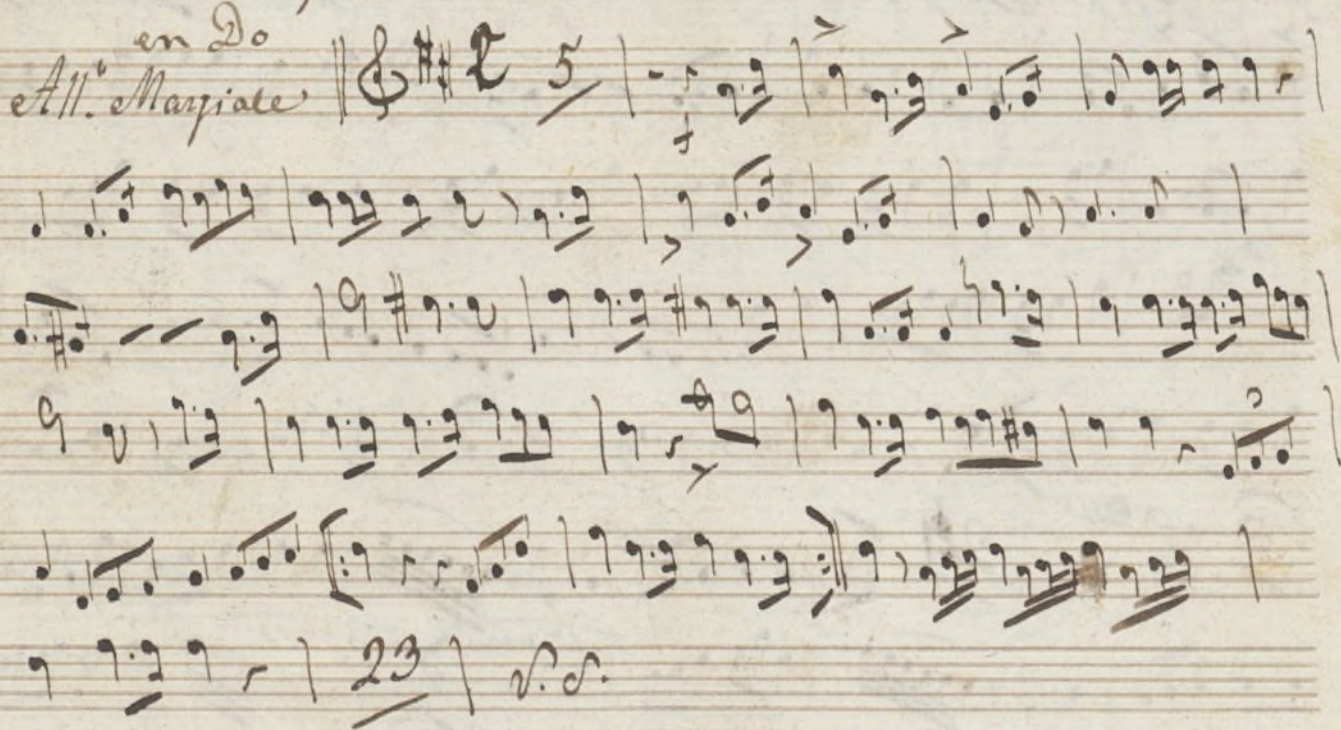 en Do
All.º Marziale 5
23 V. S.